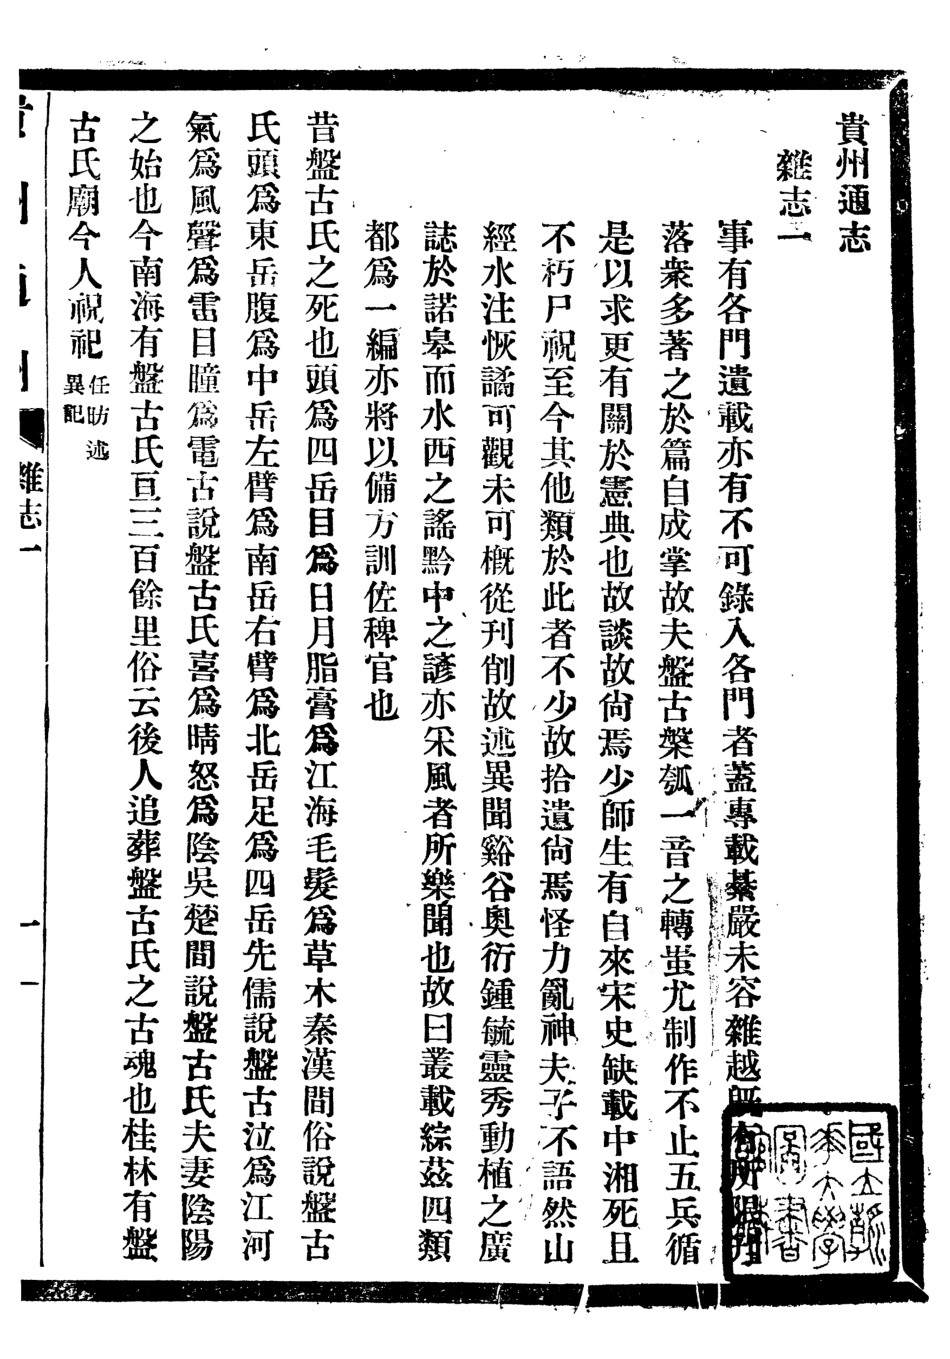 貴州通志
雜志一
事有各門遺載亦有不可錄入各門者蓋專載綦嚴未容雜越既有所限
落衆多著之於篇自成掌故夫盤古槃瓠一音之轉蚩尤制作不止五兵循
是以求更有關於憲典也故談故尙焉少師生有自來宋史缺載中湘死且
不朽尸祝至今其他類於此者不少故拾遺尙焉怪力亂神夫子不語然山
經水注恢譎可觀未可槪從刊削故述異聞谿谷奧衍鍾毓靈秀動植之廣
誌於諾皋而水西之謠黔中之諺亦采風者所樂聞也故曰叢載綜茲四類
都爲一編亦將以備方訓佐稗官也
昔盤古氏之死也頭爲四岳目爲日月脂膏爲江海毛髮爲草木秦漢間俗說盤古
氏頭爲東岳腹爲中岳左臂爲南岳右臂爲北岳足爲四岳先儒說盤古泣爲江河
氣爲風聲爲雷目瞳爲電古說盤古氏喜爲晴怒爲陰吳楚間說盤古氏夫妻陰陽
之始也今南海有盤古氏亘三百餘里俗云後人追葬盤古氏之古魂也桂林有盤
古氏廟今人祝祀任昉述
異記
雜志一
一
國立
清華大學
圖書